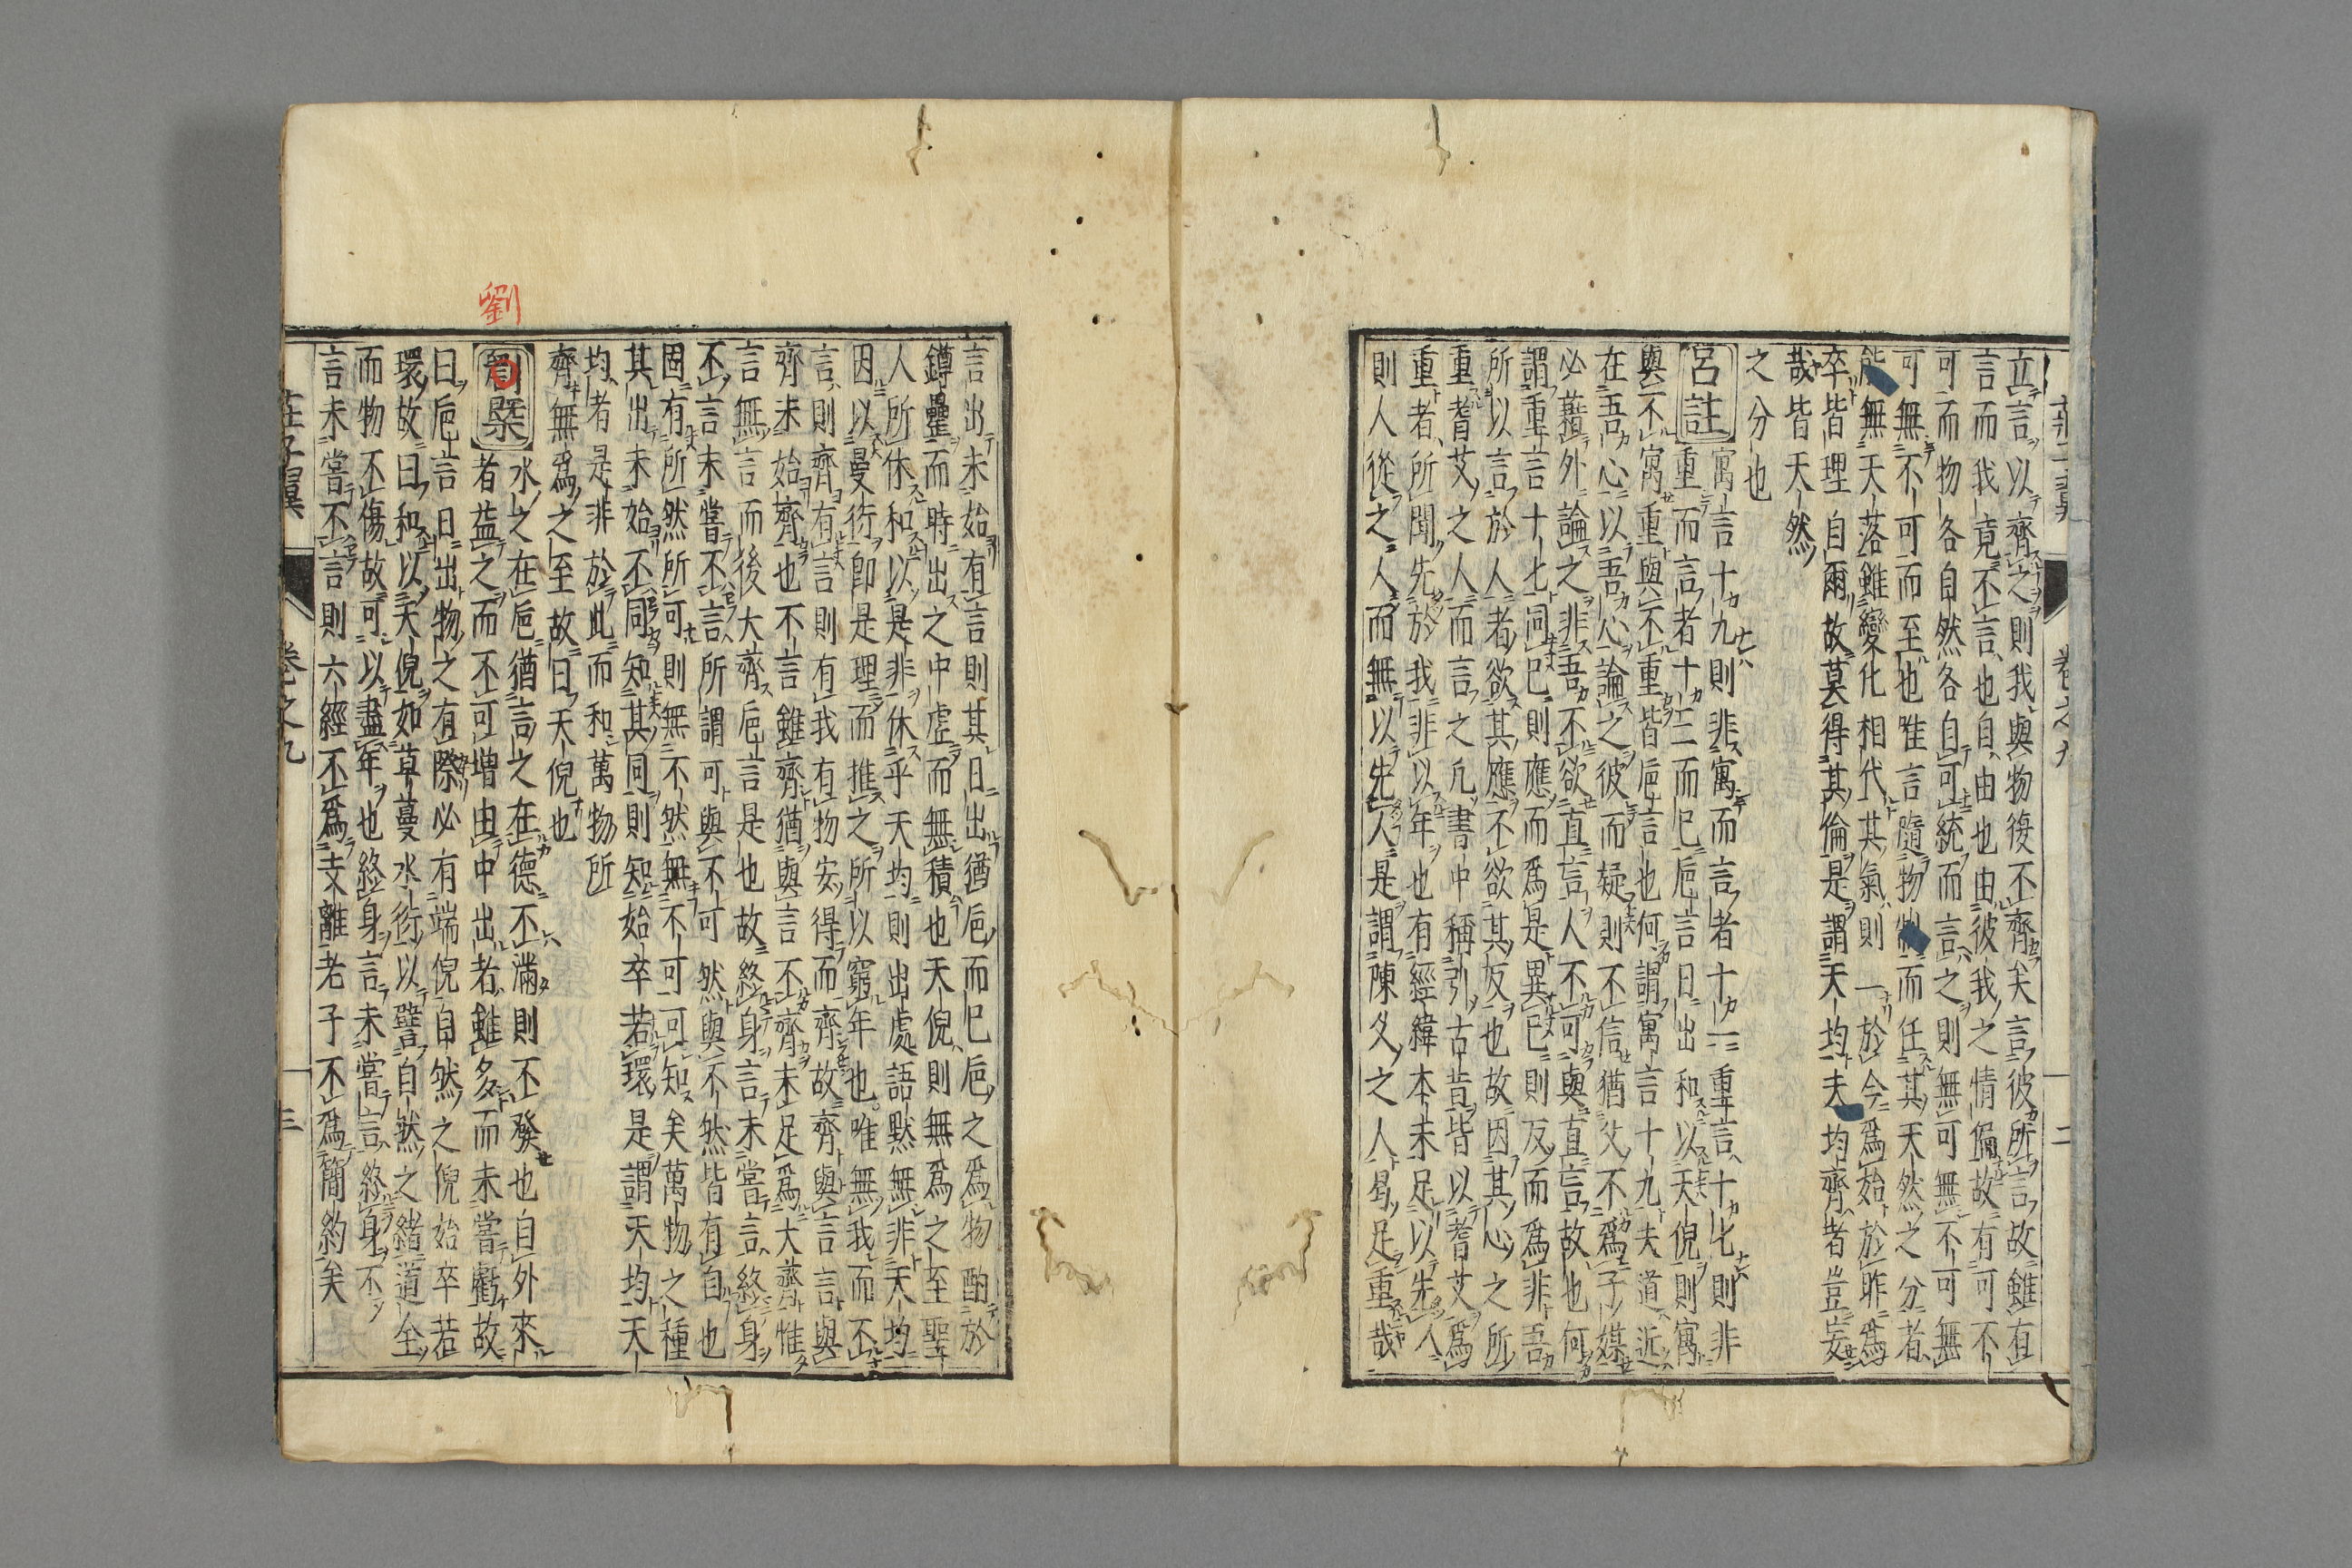 立言以齊之則我與物復不齊矣言彼所言故雖有
言而我竟不言也自由也由彼我之情偏故有可不
可而物各自然各自可統而言之則無可無不可無
可無不可而至也唯言隨物而任其天然之分者
無天落雖變化相代其氣則一於今爲始於昨爲
卒皆理自爾故莫得其倫是謂天均夫均齊者豈妄
哉皆天然
之分也
呂註 寓言十九則非寓而言者十一重言十七則非
重而言者十三而已巵言日出和以天倪則寓
與不寓重與不重皆巵言也何謂寓言十九夫道近
在吾心以吾心論之彼而疑則不信猶父不爲子媒
必藉外論之非吾不欲直言人不可與直言故也何
謂重言十七同已則應而爲是異已則反而爲非吾
所以言於人者欲其應不欲其反也故因其心之所
重耆艾之人而言之凡書中稱引古昔皆以耆艾爲
重者所聞先於我非以年也有經緯本末足以先人
則人從之人而無以先人是謂陳久之人曷足重哉
莊子翼 卷之九 二
言出未始有言則其日出猶巵而已巵之爲物酌於
罇罍而時出之中虛而無積也天倪則無爲之至聖
人所休和以是非休乎天均則出處語默無非天均
因以曼衍即是理而推之所以窮年也唯無我而不
言則齊有言則有我有物安得而齊故齊與言言與
齊未始齊也不言雖齊猶與言不齊未足爲大齊惟
言無言而後大齊巵言是也故終身言未嘗言終身
不言未嘗不言所謂可與不可然與不然皆有自也
固有所然所可則無不然無不可可知矣萬物之種
其出未始不同知其同則知始卒若環是謂天均天
均者是非於此而和萬物所
齊無爲之至故曰天倪也
劉
劉槩 水之在巵猶言之在德不滿則不發也自外來
者益之而不可增由中出者雖多而未嘗虧故
曰巵言日出物之有際必有端倪自然之倪始卒若
環故曰和以天倪如草蔓水衍以譬自然之緒道全
而物不傷故可以盡年也終身言未嘗言終身不
言未嘗不言則六經不爲支離老子不爲簡約矣
莊子翼 卷之九 三